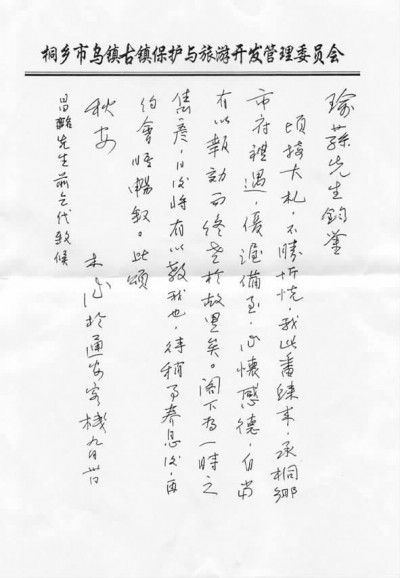 桐乡市乌镇古镇保护与旅游开发管理委员会
瑜蓀先生鈞鉴
頃接大札,不勝忻忱,我此番歸来,承桐鄉
市府禮遇,優渥備至,心懷感德,自當
有以報効而終老於故里矣。阁下為一時之
雋彦,日後将有以教我也,待稍事養息後,再
約會晤暢叙。此頌
秋安
木心於通安客棧九月廿
昌 先生前乞代致候